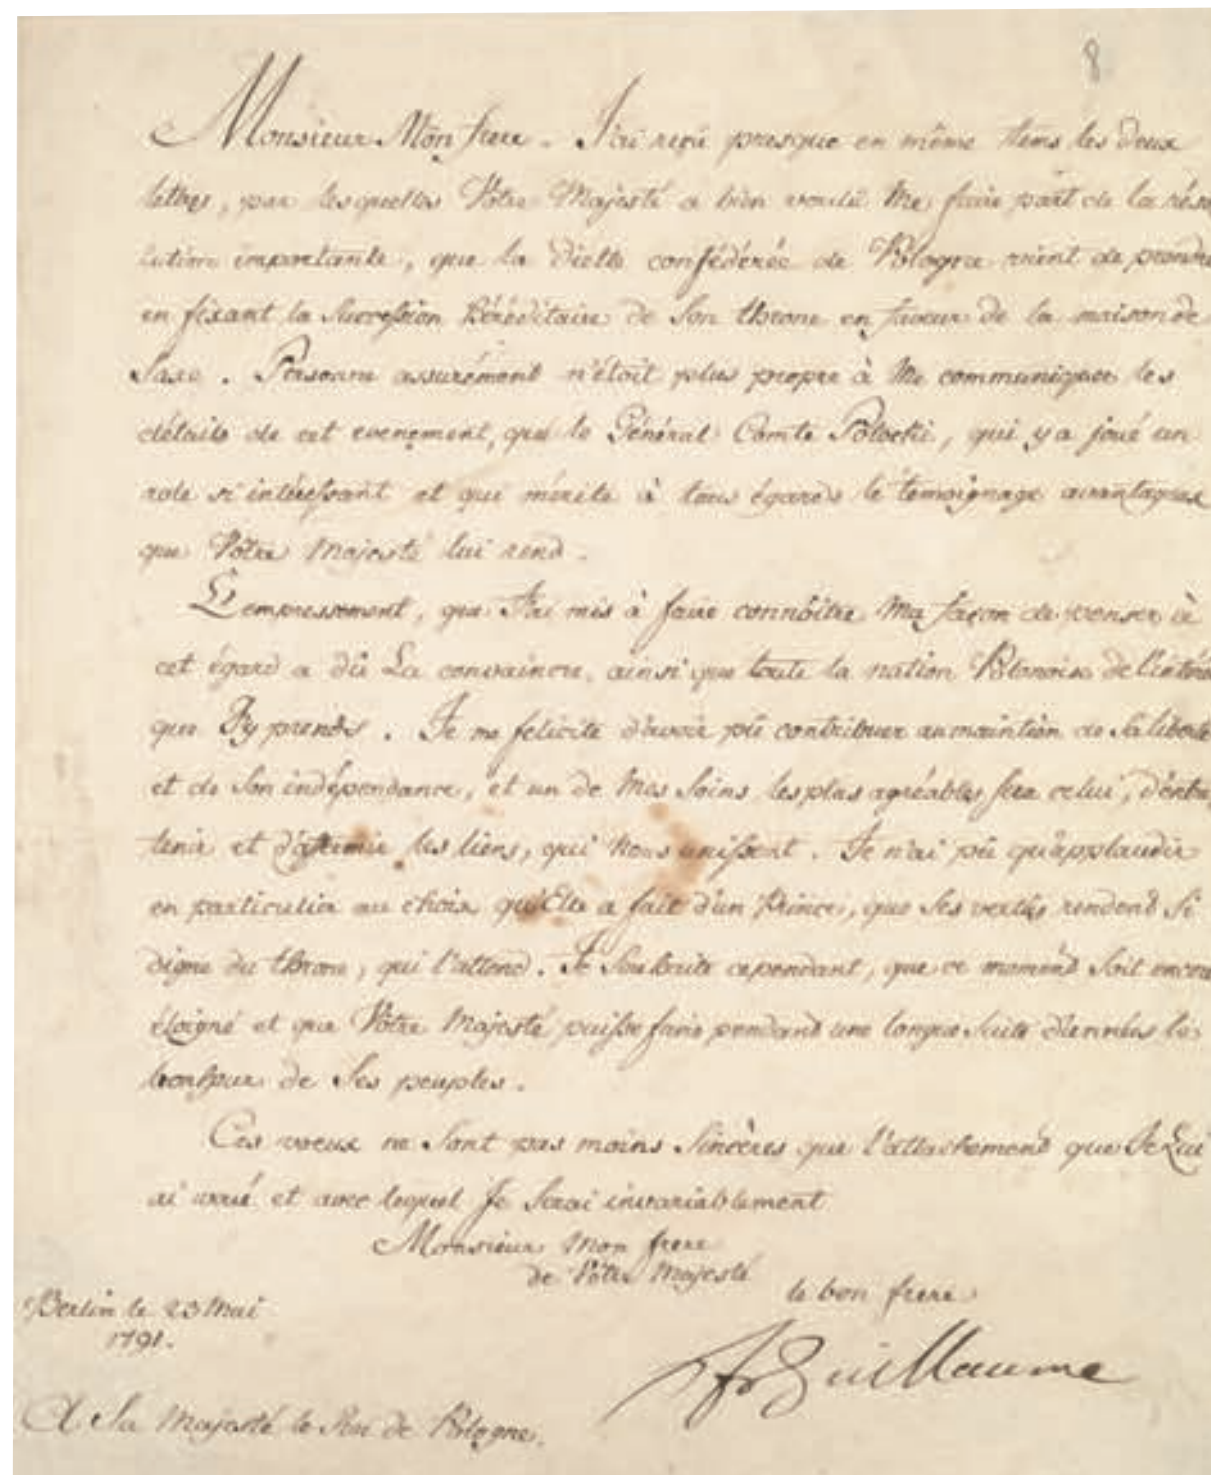 8
Monsieur Mon frere. J'ai reçu presque en même tems les deux
lettres, par lesquelles Vôtre Majesté a bien voulû Me faire part de la réso
lution importante, que la diette confédérée de Pologne vient de prendre
en fixant la Succession héréditaire de Son throne en faveur de la maison de
Saxe. Personne assurément n'étoit plus propre à Me communiquer les
détails de cet evenement, que le Général Comte Potocki, qui y a joué un
role si intéressant et qui mérite à tous égards le témoignage avantageux
que Vôtre Majesté lui rend.
L'empressement, que J'ai mis à faire connôitre Ma façon de penser à
cet égard a dû La convaincre, ainsi que toute la nation Polonoise de l'intérêt
que J'y prends. Je me felicite d'avoir pû contribuer au maintien de Sa liberté
et de Son indépendance, et un de Mes Soins les plus agréables sera celui, d'entre
tenir et d'affermir les liens, qui Nous unissent. Je n'ai pû qu'applaudir
en particulier au choix qu'Elle a fait d'un Prince, que Ses vertus rendent Si
digne du throne, qui l'attend. Je Souhaite cependant, que ce moment Soit encore
éloigné et que Vôtre Majesté puisse faire pendant une longue Suite d'années le
bonheur de Ses peuples.
Ces voeux ne Sont pas moins Sincères que l'attachement que Je Lui
ai voué et avec lequel Je Serai invariablement
Monsieur Mon frere
de Vôtre Majesté
le bon frere
Berlin le 23 Mai
1791.
FrGuillaume
A Sa Majesté le Roi de Pologne.